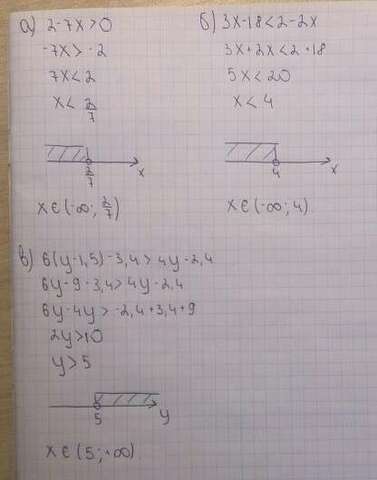 а) 2-7x>0
-7x>-2
7x<2
x< 2/7
2/7 x
x∈(-∞; 2/7)
б) 3x-18<2-2x
3x+2x<2+18
5x<20
x<4
4 x
x∈(-∞; 4)
в) 6(y-1,5)-3,4>4y-2,4
6y-9-3,4>4y-2,4
6y-4y>-2,4+3,4+9
2y>10
y>5
5 y
x∈(5; +∞)